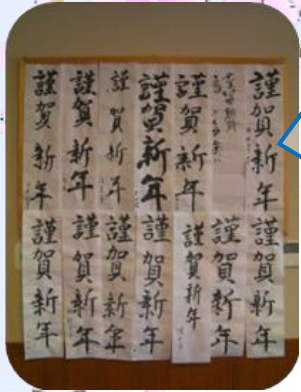 謹賀新年
謹賀新年
謹賀新年
謹賀新年
謹賀新年
謹賀新年
謹賀新年
謹賀新年
謹賀新年
謹賀新年
謹賀新年
謹賀新年
謹賀新年